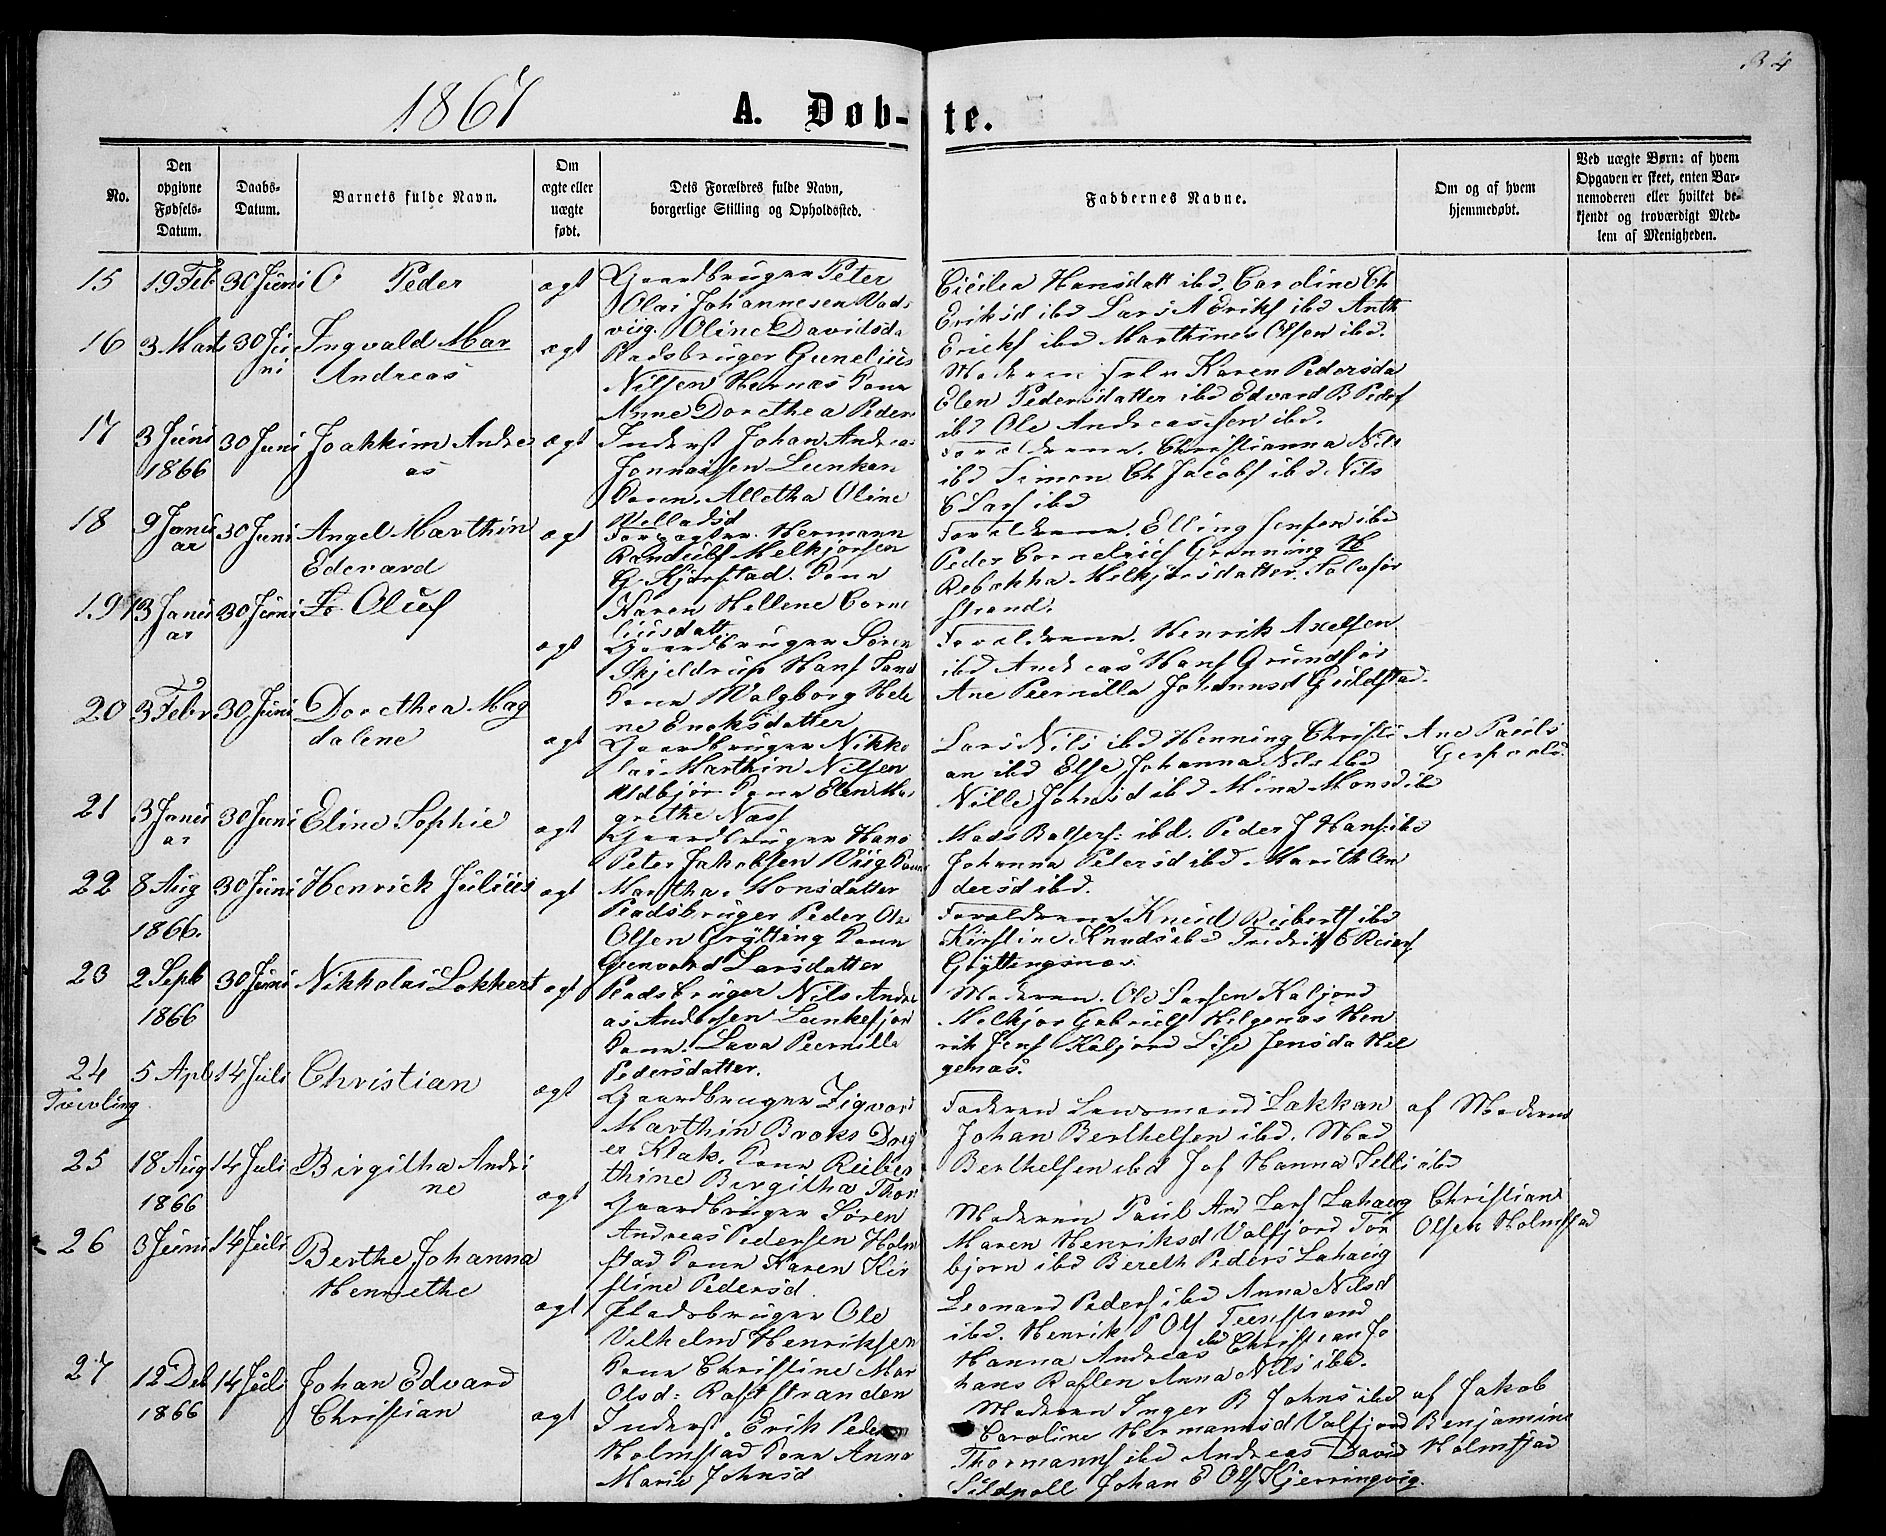 34
1867
A. Døb-te.
No.
Den opgivne Fødsels-Datum.
Daabs-Datum.
Barnets fulde Navn.
Om ægte eller uægte født.
Dets Forældres fulde Navn, borgerlige Stilling og Opholdssted.
Faddernes Navne.
Om og af hvem hjemmedøbt.
Ved uægte Børn: af hvem Opgaven er skeet, enten Barnemoderen eller hvilket bekjendt og troværdigt Medlem af Menigheden.
15 19 Feb 30 Juni O Peder ægt
Gaardbruger Peter
Olai Johannesen Vads
viig. Oline Davidsd
Cicilia Hansdatt ibd. Caroline Ch
Eriksd ibd Lars A Eriks ibd Anth
Eriks ibd Marthines Olsen ibd.
16 3 Marts 30 Juni Ingvald Mar
Andreas ægt
Pladsbruger Gunelius
Nilsen Hernæs Kone
Anne Dorethea Peder
Moderen selv Karen Pedersda
Elen Pedersdatter ibd Edvard B Peders
ibd Ole Andreassen ibd.
17 3 Juni 1866 30 Juni Joakkim Andre
as ægt
Inderst Johan Andrea
Jonnassen Lunkan
Kone. Alletha Oline
Villadsd
Forældrene. Christianna Nils
ibd Simon Ch Jacobs ibd Nils
C Lars ibd
18 9 Januar 30 Juni Angel Marthin
Edevard ægt
Forpagter Hermann
Randulf Melkjorsen
G. Kjørstad. Kone
Karen Hellene Corne
liusdatt
Forældrene. Elling Jensen ibd
Peder Cornelius Grønning
Rebekka Melkjorsdatter.
strand.
19 13 Januar 30 Juni Fr Oluf ægt
Gaardbruger Søren
Skjeldrup Hans Sand
Kone Walgborg Hele
ne Enoksdatter
Forældrene. Henrik Axelsen
ibd Andreas Hans Grundfør
Ane Pernilla Johannsd Guldstad.
20 3 Febr 30 Juni Dorethea Mag
dalene ægt
Gaardbruger Nikko
lai Marthin Nilsen
Udbjør Kone Elen Ma
grethe Næss
Lars Nils ibd Henning Christi
an ibd Else Johanna Nils ibd
Nille Johnsd ibd Mina Monsd ibd
Ane Pauls
21 3 Januar 30 Juni Eline Sophie ægt
Gaardbruger Hans
Peter Jakobsen Viig Kone
Martha Monsdatter
Mads Balsers: ibd. Peder J Hans ibd
Johanna Petersd ibd. Marith An
dersd ibd.
22 8 Aug 1866. 30 Juni Henrick Julius ægt
Pladsbruger Peder Ole
Olsen Grytting Kone
Gunvord Larsdatter
Forældrene Knud Ruberts ibd
Kirstine Knuds ibd Fredrik C Reiers
Gryttingsnæs
23 2 Sepb 1866 30 Juni Nikkolai Lokkert ægt
Pladsbruger Nils Andre
as Andersen Lunkefjor
Kone. Lava Pernilla
Pedersdatter.
Moderen. Ole Larsen Kaljord
Melkjor Gabriels Hilgenæs Hen
rik Jens Kaljord Lise Jensda Hil
genæs.
24 Tvivling 5 Apl 14 Juli Christian ægt
Gaardbruger Zigvard
Marthin Broks Drey
er Klak. Kone Ruber
thine Birgitha Thor
Faderen Lensmand Lakkan
Johan Berthelsen ibd. Mad
Berthelsen ibd Jof Hanna Selli ibd
af Moderen
25 18 Aug 1866 14 Juli Birgitha Andri
ne ægt
Gaardbruger Søren
Andreas Pedersen Holm
stad Kone Karen Kir
stine Pedersd
Moderen Paul And Lars Lahaug
Maren Henriksd Valfjord Tor
bjørn ibd Bereth Peders Lahaug
Christian
Olsen Holmstad
26 3 Juni 14 Juli Berthe Johanna
Henrethe ægt
Pladsbruger Ole
Vilhelm Henriksen
Kone Christine Mar
Olsd: Raftstranden
Leonard Peders ibd Anna Nilsd
ibd. Henrik P Ols Teinstrand
Hanna Andreas ibd Christian Jo
hans Anna Nils ibd.
27 12 Deb 1866 14 Juli Johan Edvard
Christian ægt
Inderst. Erik Peder
Holmstad Kone Anna
Marie Johnsd
Moderen Inger B Johns ibd
Caroline Hermannsd Valfjord
Thormanns ibd Andreas David
Sildpoll Johan E Ols Kjerringvig.
af Jakob
Benjamins
Holmstad